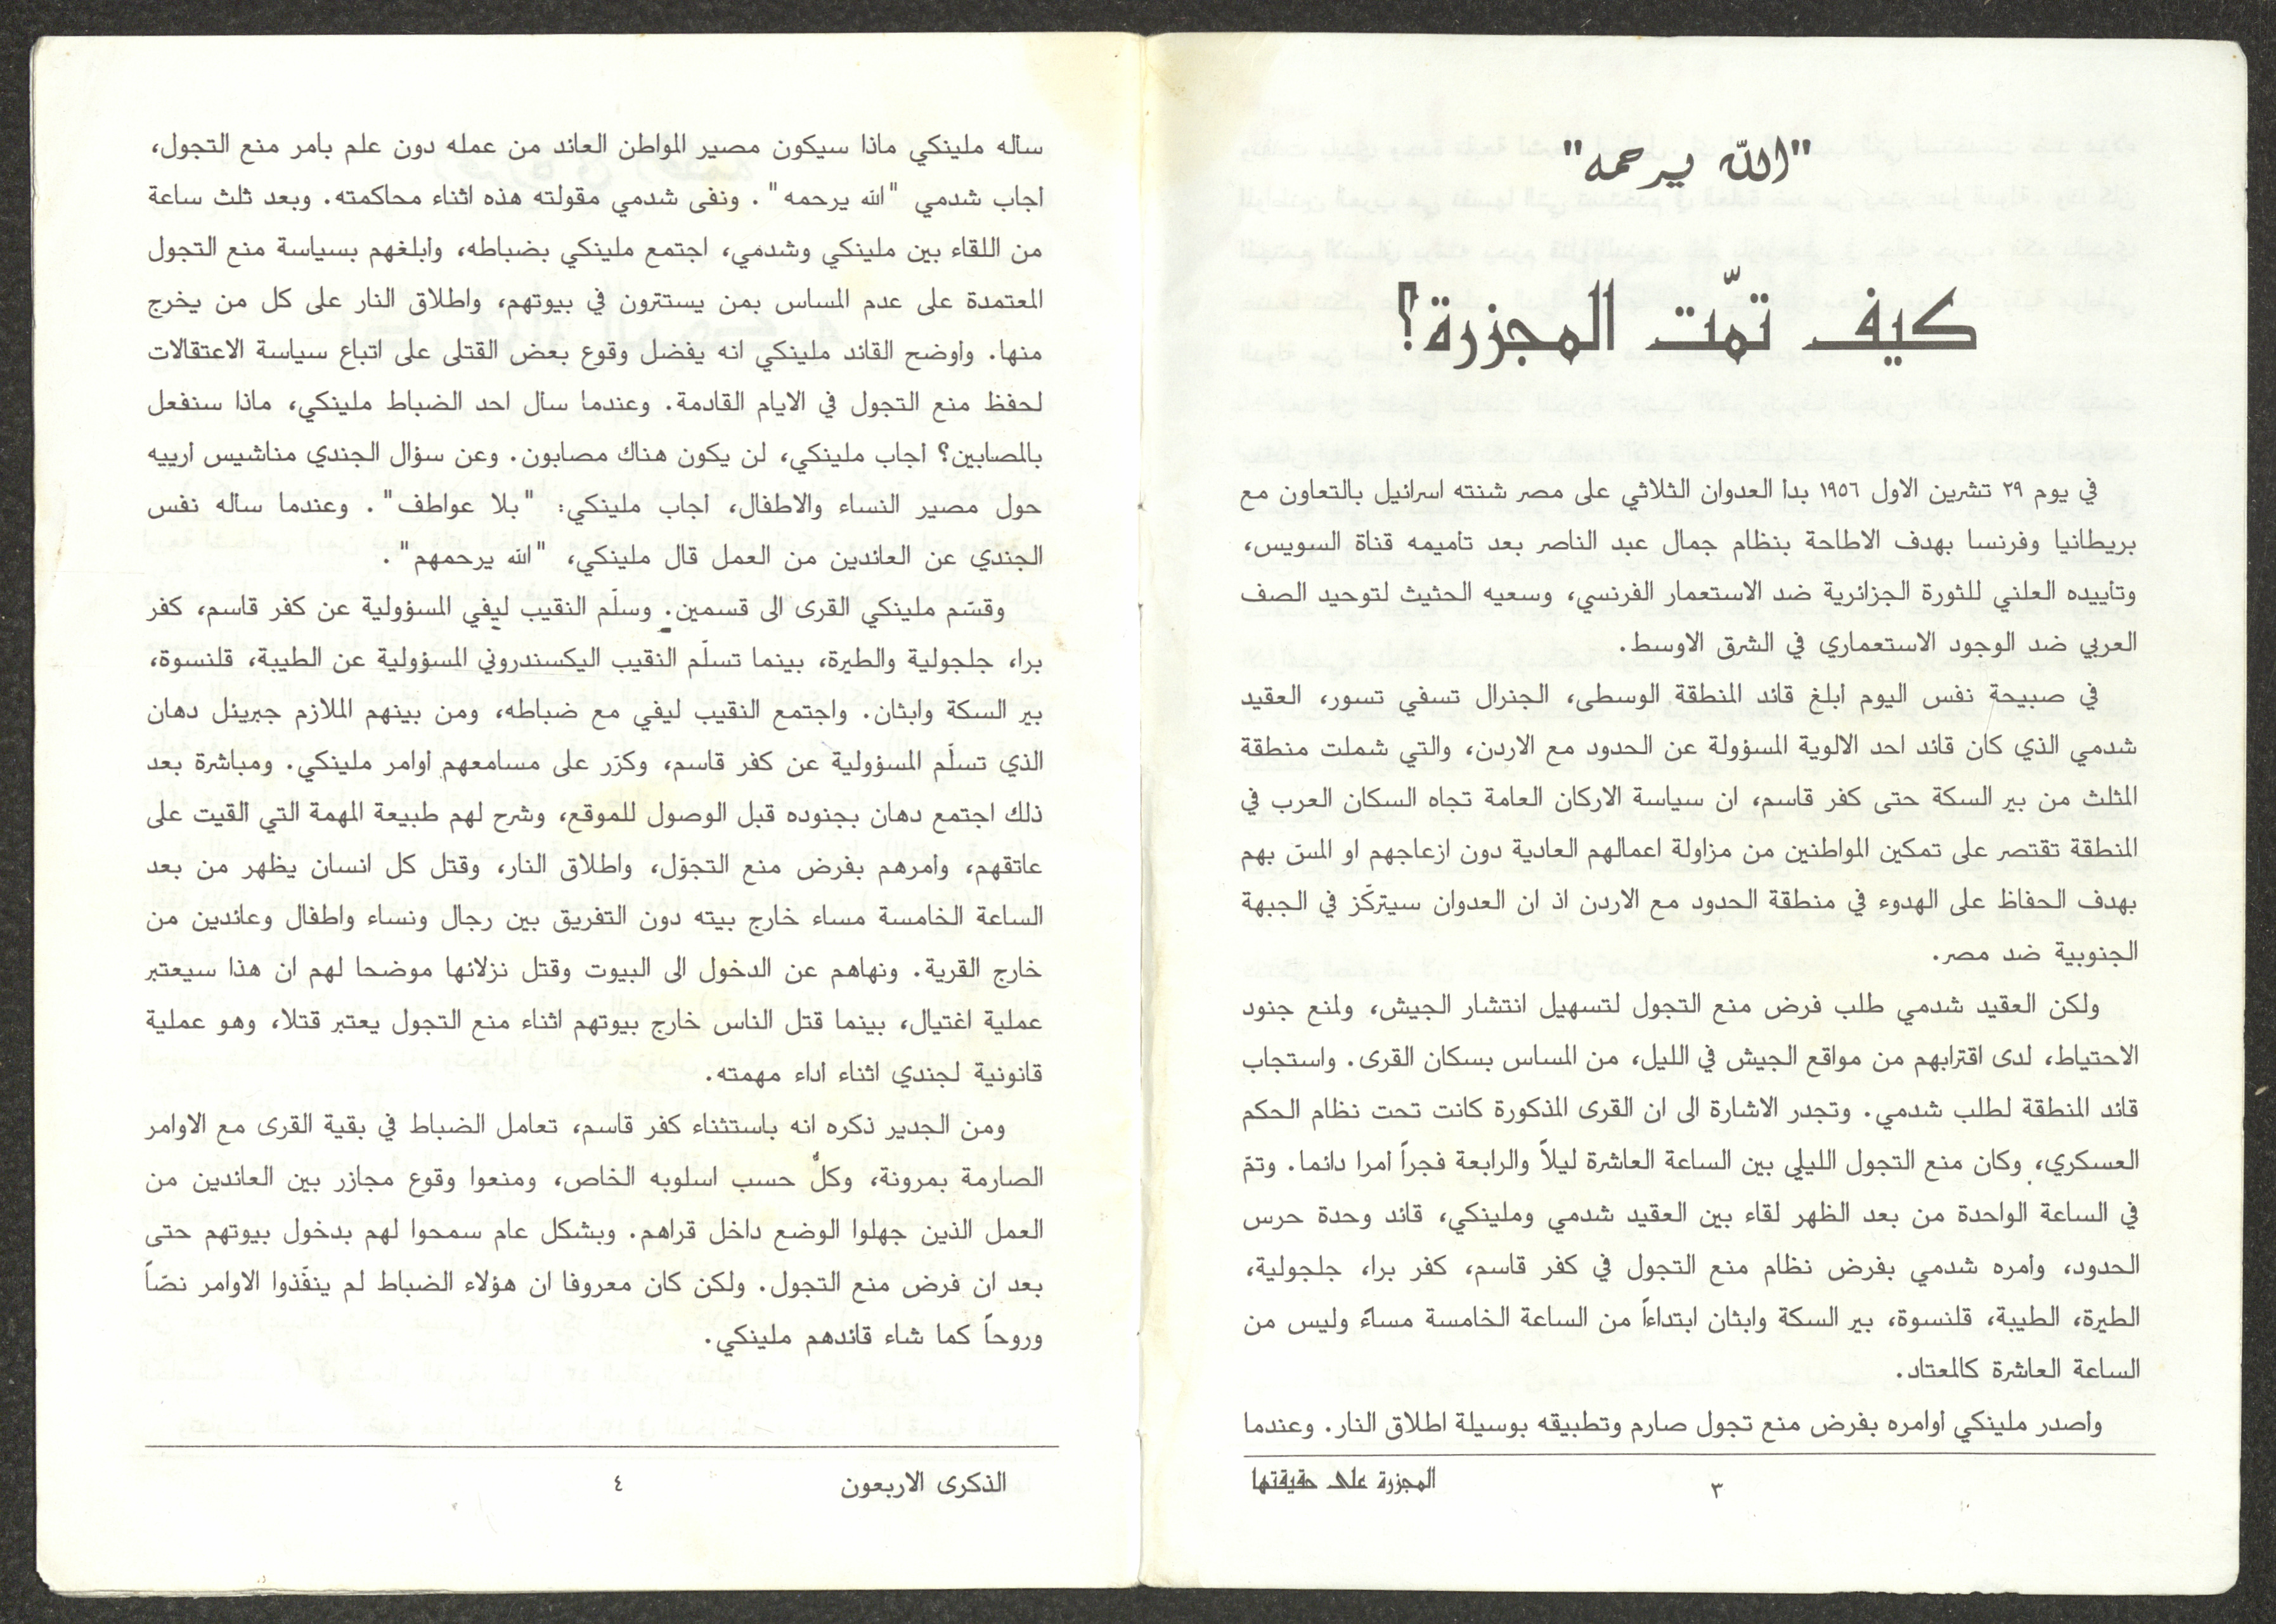 "الله يرحمه"
كيف تمّت المجزرة؟
في يوم ٢٩ تشرين الاول ١٩٥٦ بدأ العدوان الثلاثي على مصر شنته اسرائيل بالتعاون مع
بريطانيا وفرنسا بهدف الاطاحة بنظام جمال عبد الناصر بعد تأميمه قناة السويس،
وتأييده العلني للثورة الجزائرية ضد الاستعمار الفرنسي، وسعيه الحثيث لتوحيد الصف
العربي ضد الوجود الاستعماري في الشرق الاوسط.
في صبيحة نفس اليوم أبلغ قائد المنطقة الوسطى، الجنرال تسفي تسور، العقيد
شدمي الذي كان قائد احد الالوية المسؤولة عن الحدود مع الاردن، والتي شملت منطقة
المثلث من بير السكة حتى كفر قاسم، ان سياسة الاركان العامة تجاه السكان العرب في
المنطقة تقتصر على تمكين المواطنين من مزاولة اعمالهم العادية دون ازعاجهم او المسّ بهم
بهدف الحفاظ على الهدوء في منطقة الحدود مع الاردن اذ ان العدوان سيتركّز في الجبهة
الجنوبية ضد مصر.
ولكن العقيد شدمي طلب فرض منع التجول لتسهيل انتشار الجيش، ولمنع جنود
الاحتياط، لدى اقترابهم من مواقع الجيش في الليل، من المساس بسكان القرى. واستجاب
قائد المنطقة لطلب شدمي. وتجدر الاشارة الى ان القرى المذكورة كانت تحت نظام الحكم
العسكري، وكان منع التجول الليلي بين الساعة العاشرة ليلاً والرابعة فجراً أمرا دائما. وتمّ
في الساعة الواحدة من بعد الظهر لقاء بين العقيد شدمي وملينكي، قائد وحدة حرس
الحدود، وأمره شدمي بفرض نظام منع التجول في كفر قاسم، كفر برا، جلجولية،
الطيرة، الطيبة، قلنسوة، بير السكة وابثان ابتداءاً من الساعة الخامسة مساءً وليس من
الساعة العاشرة كالمعتاد.
وأصدر ملينكي أوامره بفرض منع تجول صارم وتطبيقه بوسيلة اطلاق النار. وعندما
٣
المجزرة على حقيقتها
سأله ملينكي ماذا سيكون مصير المواطن العائد من عمله دون علم بأمر منع التجول،
أجاب شدمي "الله يرحمه". ونفى شدمي مقولته هذه اثناء محاكمته. وبعد ثلث ساعة
من اللقاء بين ملينكي وشدمي، اجتمع ملينكي بضباطه، وأبلغهم بسياسة منع التجول
المعتمدة على عدم المساس بمن يستترون في بيوتهم، واطلاق النار على كل من يخرج
منها. وأوضح القائد ملينكي انه يفضل وقوع بعض القتلى على اتباع سياسة الاعتقالات
لحفظ منع التجول في الايام القادمة. وعندما سأل احد الضباط ملينكي، ماذا سنفعل
بالمصابين؟ أجاب ملينكي، لن يكون هناك مصابون. وعن سؤال الجندي مناشيس أرييه
حول مصير النساء والاطفال، أجاب ملينكي: "بلا عواطف". وعندما سأله نفس
الجندي عن العائدين من العمل قال ملينكي، "الله يرحمهم".
وقسّم ملينكي القرى الى قسمين. وسلّم النقيب ليفي المسؤولية عن كفر قاسم، كفر
برا، جلجولية والطيرة، بينما تسلّم النقيب اليكسندروني المسؤولية عن الطيبة، قلنسوة،
بير السكة وابثان. واجتمع النقيب ليفي مع ضباطه، ومن بينهم الملازم جبريئل دهان
الذي تسلّم المسؤولية عن كفر قاسم، وكرّر على مسامعهم أوامر ملينكي. ومباشرة بعد
ذلك اجتمع دهان بجنوده قبل الوصول للموقع، وشرح لهم طبيعة المهمة التي القيت على
عاتقهم، وأمرهم بفرض منع التجوّل، واطلاق النار، وقتل كل انسان يظهر من بعد
الساعة الخامسة مساء خارج بيته دون التفريق بين رجال ونساء واطفال وعائدين من
خارج القرية. ونهاهم عن الدخول الى البيوت وقتل نزلائها موضحا لهم ان هذا سيعتبر
عملية اغتيال، بينما قتل الناس خارج بيوتهم اثناء منع التجول يعتبر قتلا، وهو عملية
قانونية لجندي اثناء أداء مهمته.
ومن الجدير ذكره انه باستثناء كفر قاسم، تعامل الضباط في بقية القرى مع الاوامر
الصارمة بمرونة، وكلٌ حسب اسلوبه الخاص، ومنعوا وقوع مجازر بين العائدين من
العمل الذين جهلوا الوضع داخل قراهم. وبشكل عام سمحوا لهم بدخول بيوتهم حتى
بعد ان فرض منع التجول. ولكن كان معروفا ان هؤلاء الضباط لم ينفّذوا الاوامر نصّاً
وروحاً كما شاء قائدهم ملينكي.
الذكرى الاربعون
٤